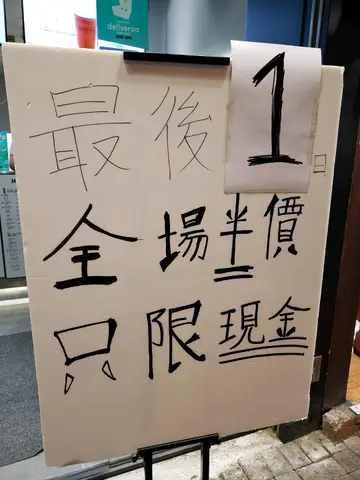 deliveroo
最後1日
全場半價
只限現金